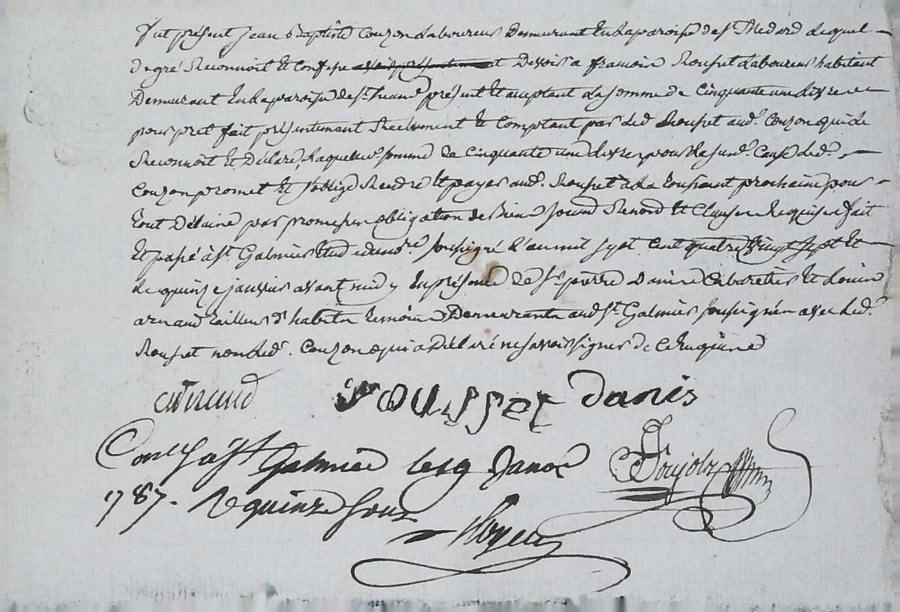 fut présent jean baptiste Couzon Laboureur demeurant en la paroisse de st. Medard Lequel
de gré Reconnoit et Confesse et Devoir a francois Rousset Laboureur habitant
Demeurant en la paroisse de st. présent et aceptant La somme de Cinquante une Livre
pour pret fait présentement Réelement et Comptant par led. Rousset aud. Couzon qui le
Reconnoit et Déclare, Laquelle somme de cinquante une Livre pour Cause led.
Couzon promet et s'oblige Rendre et payer aud. Rousset a La toussaint prochaine pour
tout Délai par promesse obligation de Bien Renond et Clauses Requises fait
et passé a St. Galmier Etude du no.re soussigné L'an mil sept Cent quatre vingt sept et
Le quinze janvier avant midy En présence de sr. pierre Danis Cabaretier et
arnaud tailleur d'habits temoins Demeurants aud. St. Galmier soussignés avec led.
Rousset non led. Couzon qui a Déclaré ne savoir signer de ce Enquis
arnaud rousset danis
Con.lé a St Galmier le 19 Janv.r
1787. R quinze sous